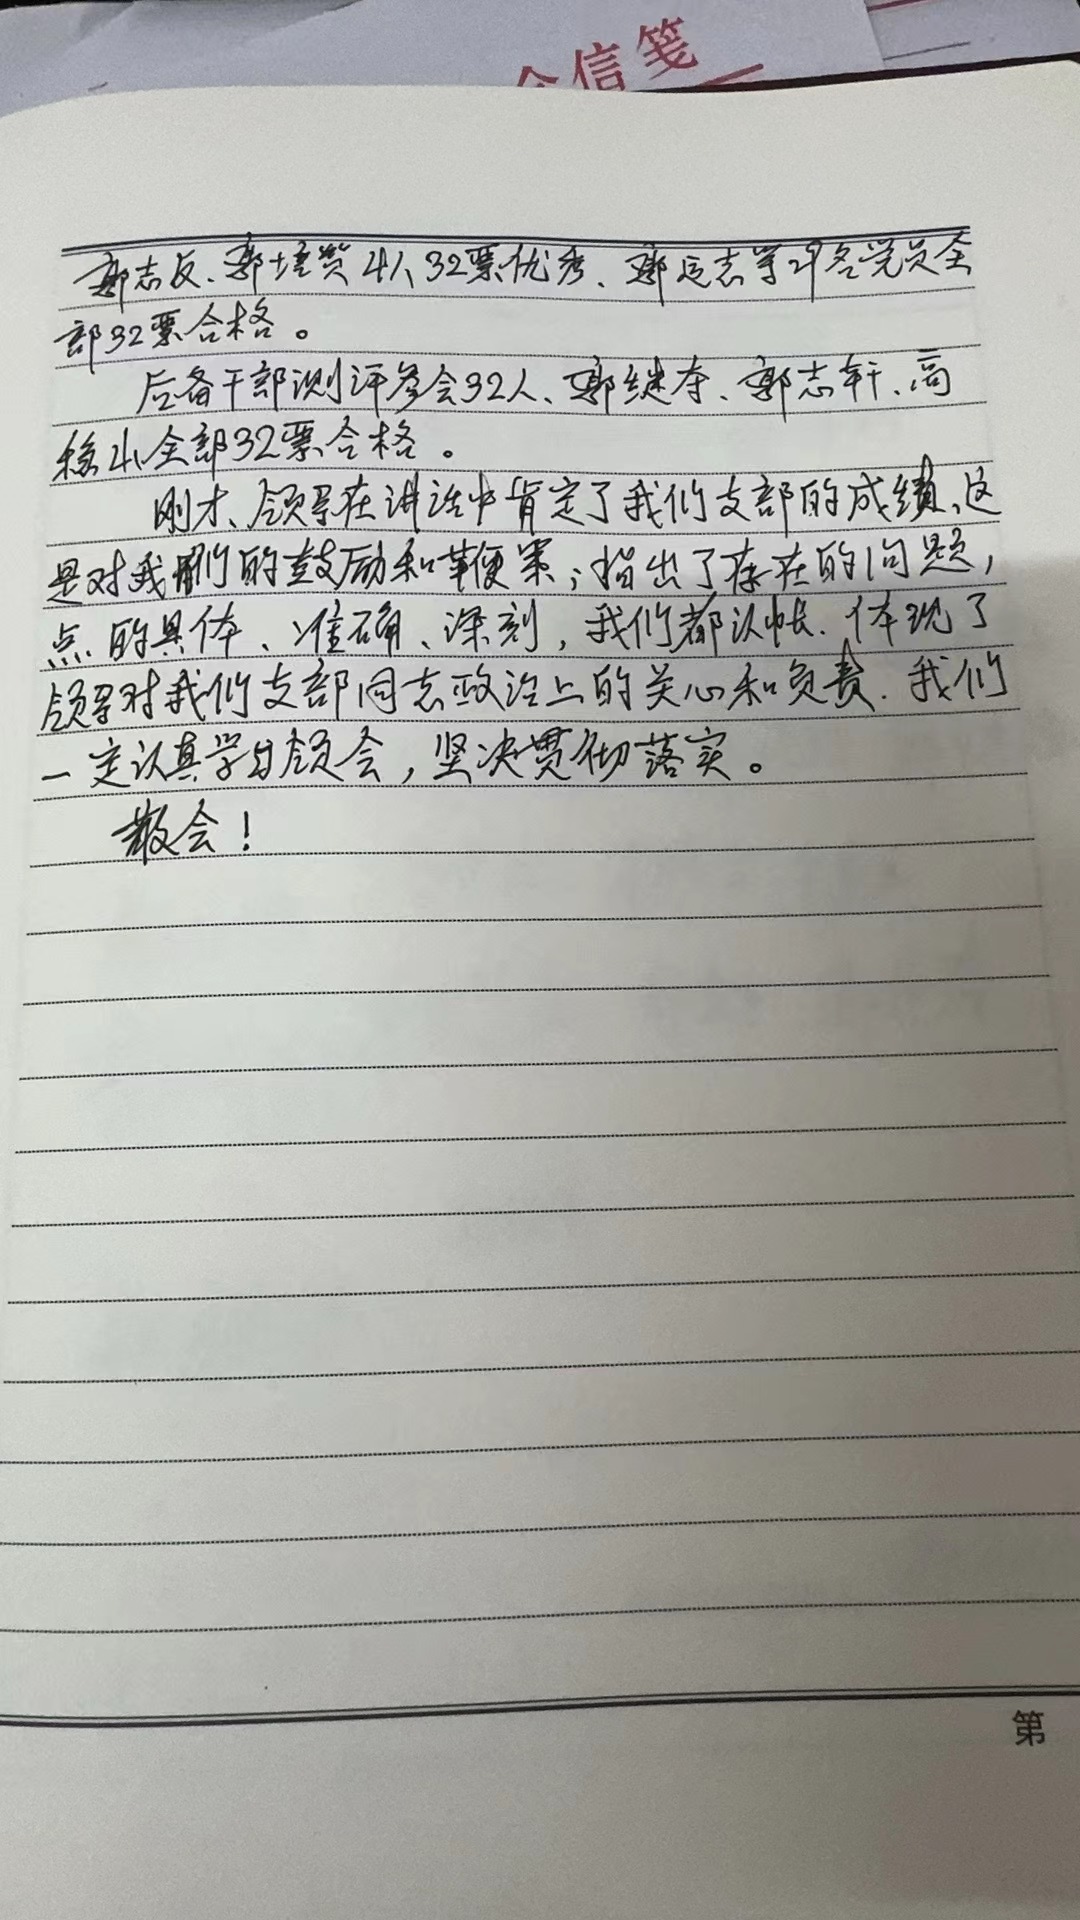 信笺
郭志反、郭培贤4人32票优秀、郭运志等29名党员全
部32票合格。
后备干部测评参会32人、郭继存、郭志轩、高
稳小全部32票合格。
刚才、领导在讲话中肯定了我们支部的成绩、这
是对我们的鼓励和鞭策；指出了存在的问题，
点的具体、准确、深刻，我们都认帐．体现了
领导对我们支部同志政治上的关心和负责．我们
一定认真学习领会，坚决贯彻落实。
散会！
第